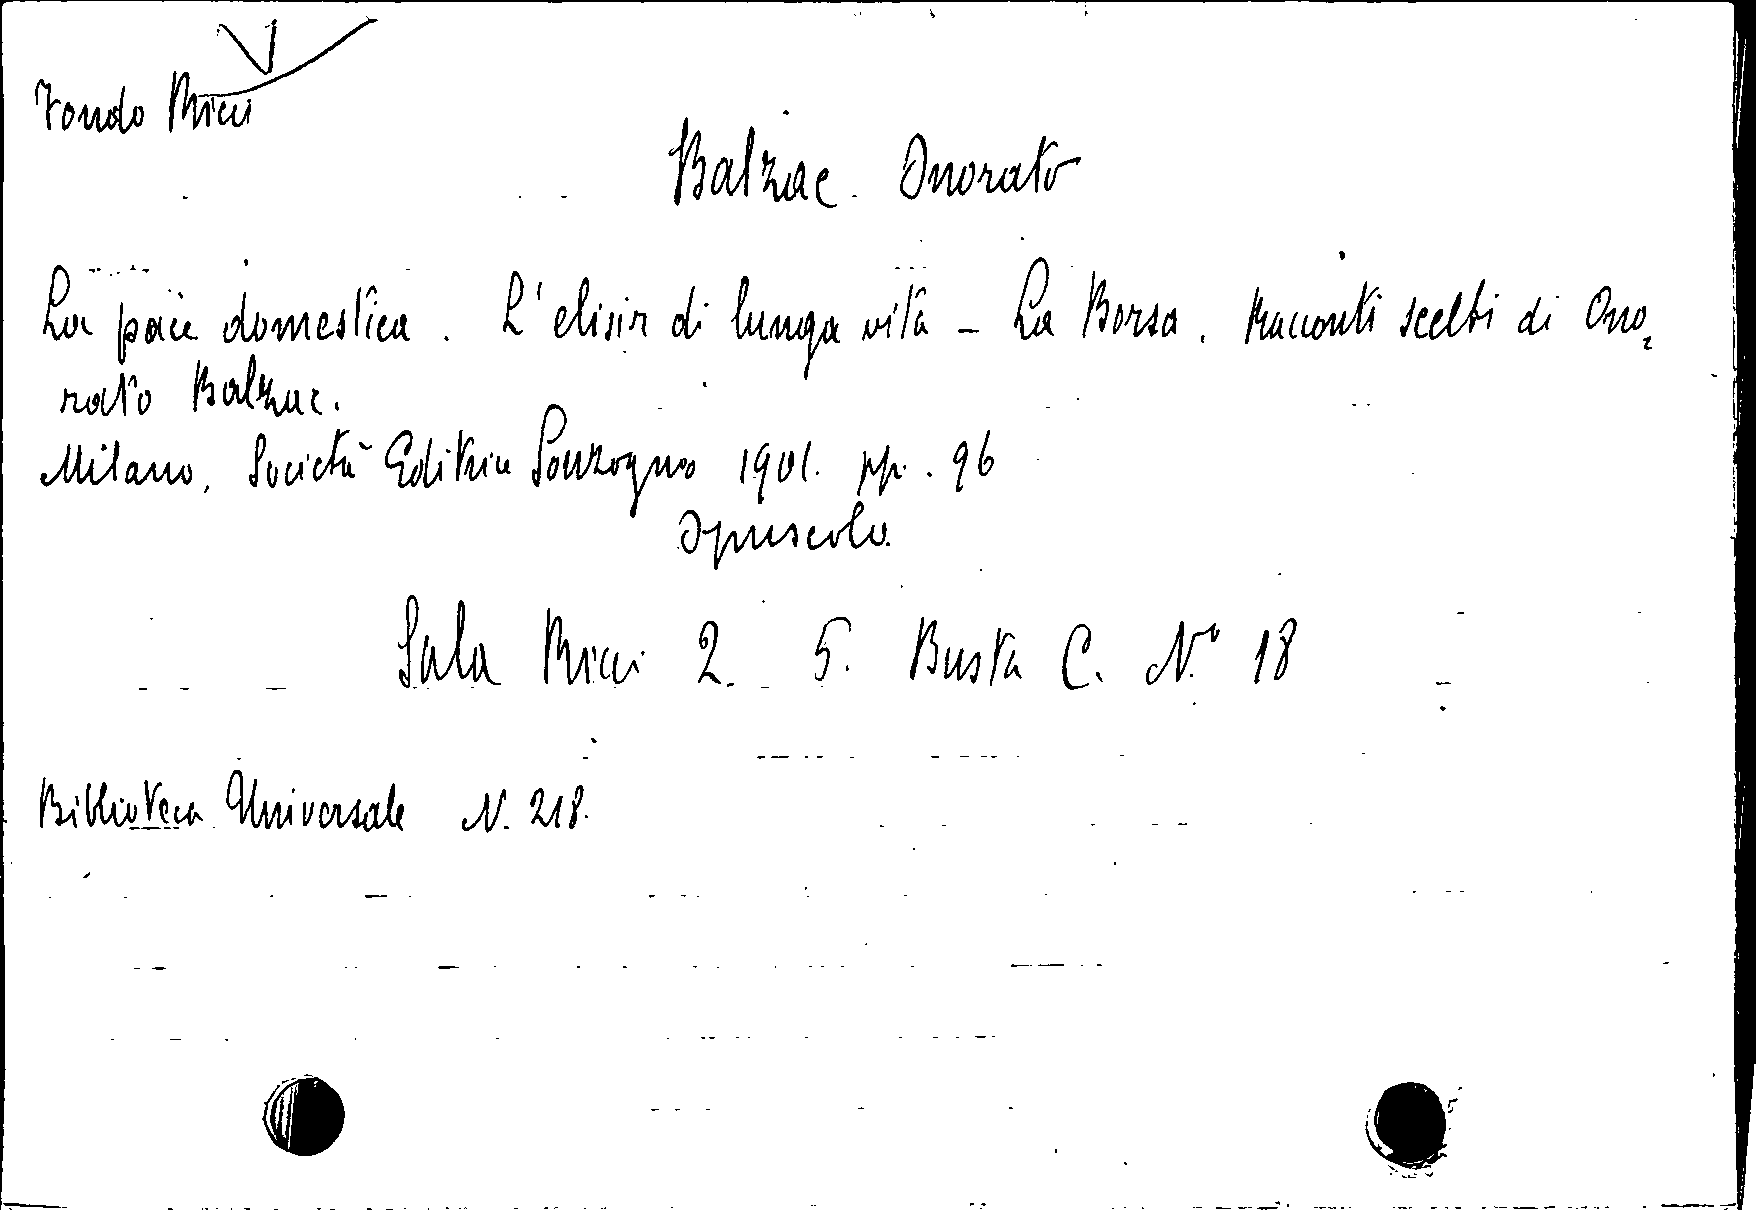 Fondo Ricci
Balzac Onorato
La pace domestica. L'elisir di lunga vita - La Borsa. Racconti scelti di Ono=
rato Balzac.
Milano, Società Editrice Sonzogno 1901. pp. 96
Opuscolo
Sala Ricci 2. 5. Busta C. N.° 18
Biblioteca Universale N. 218.